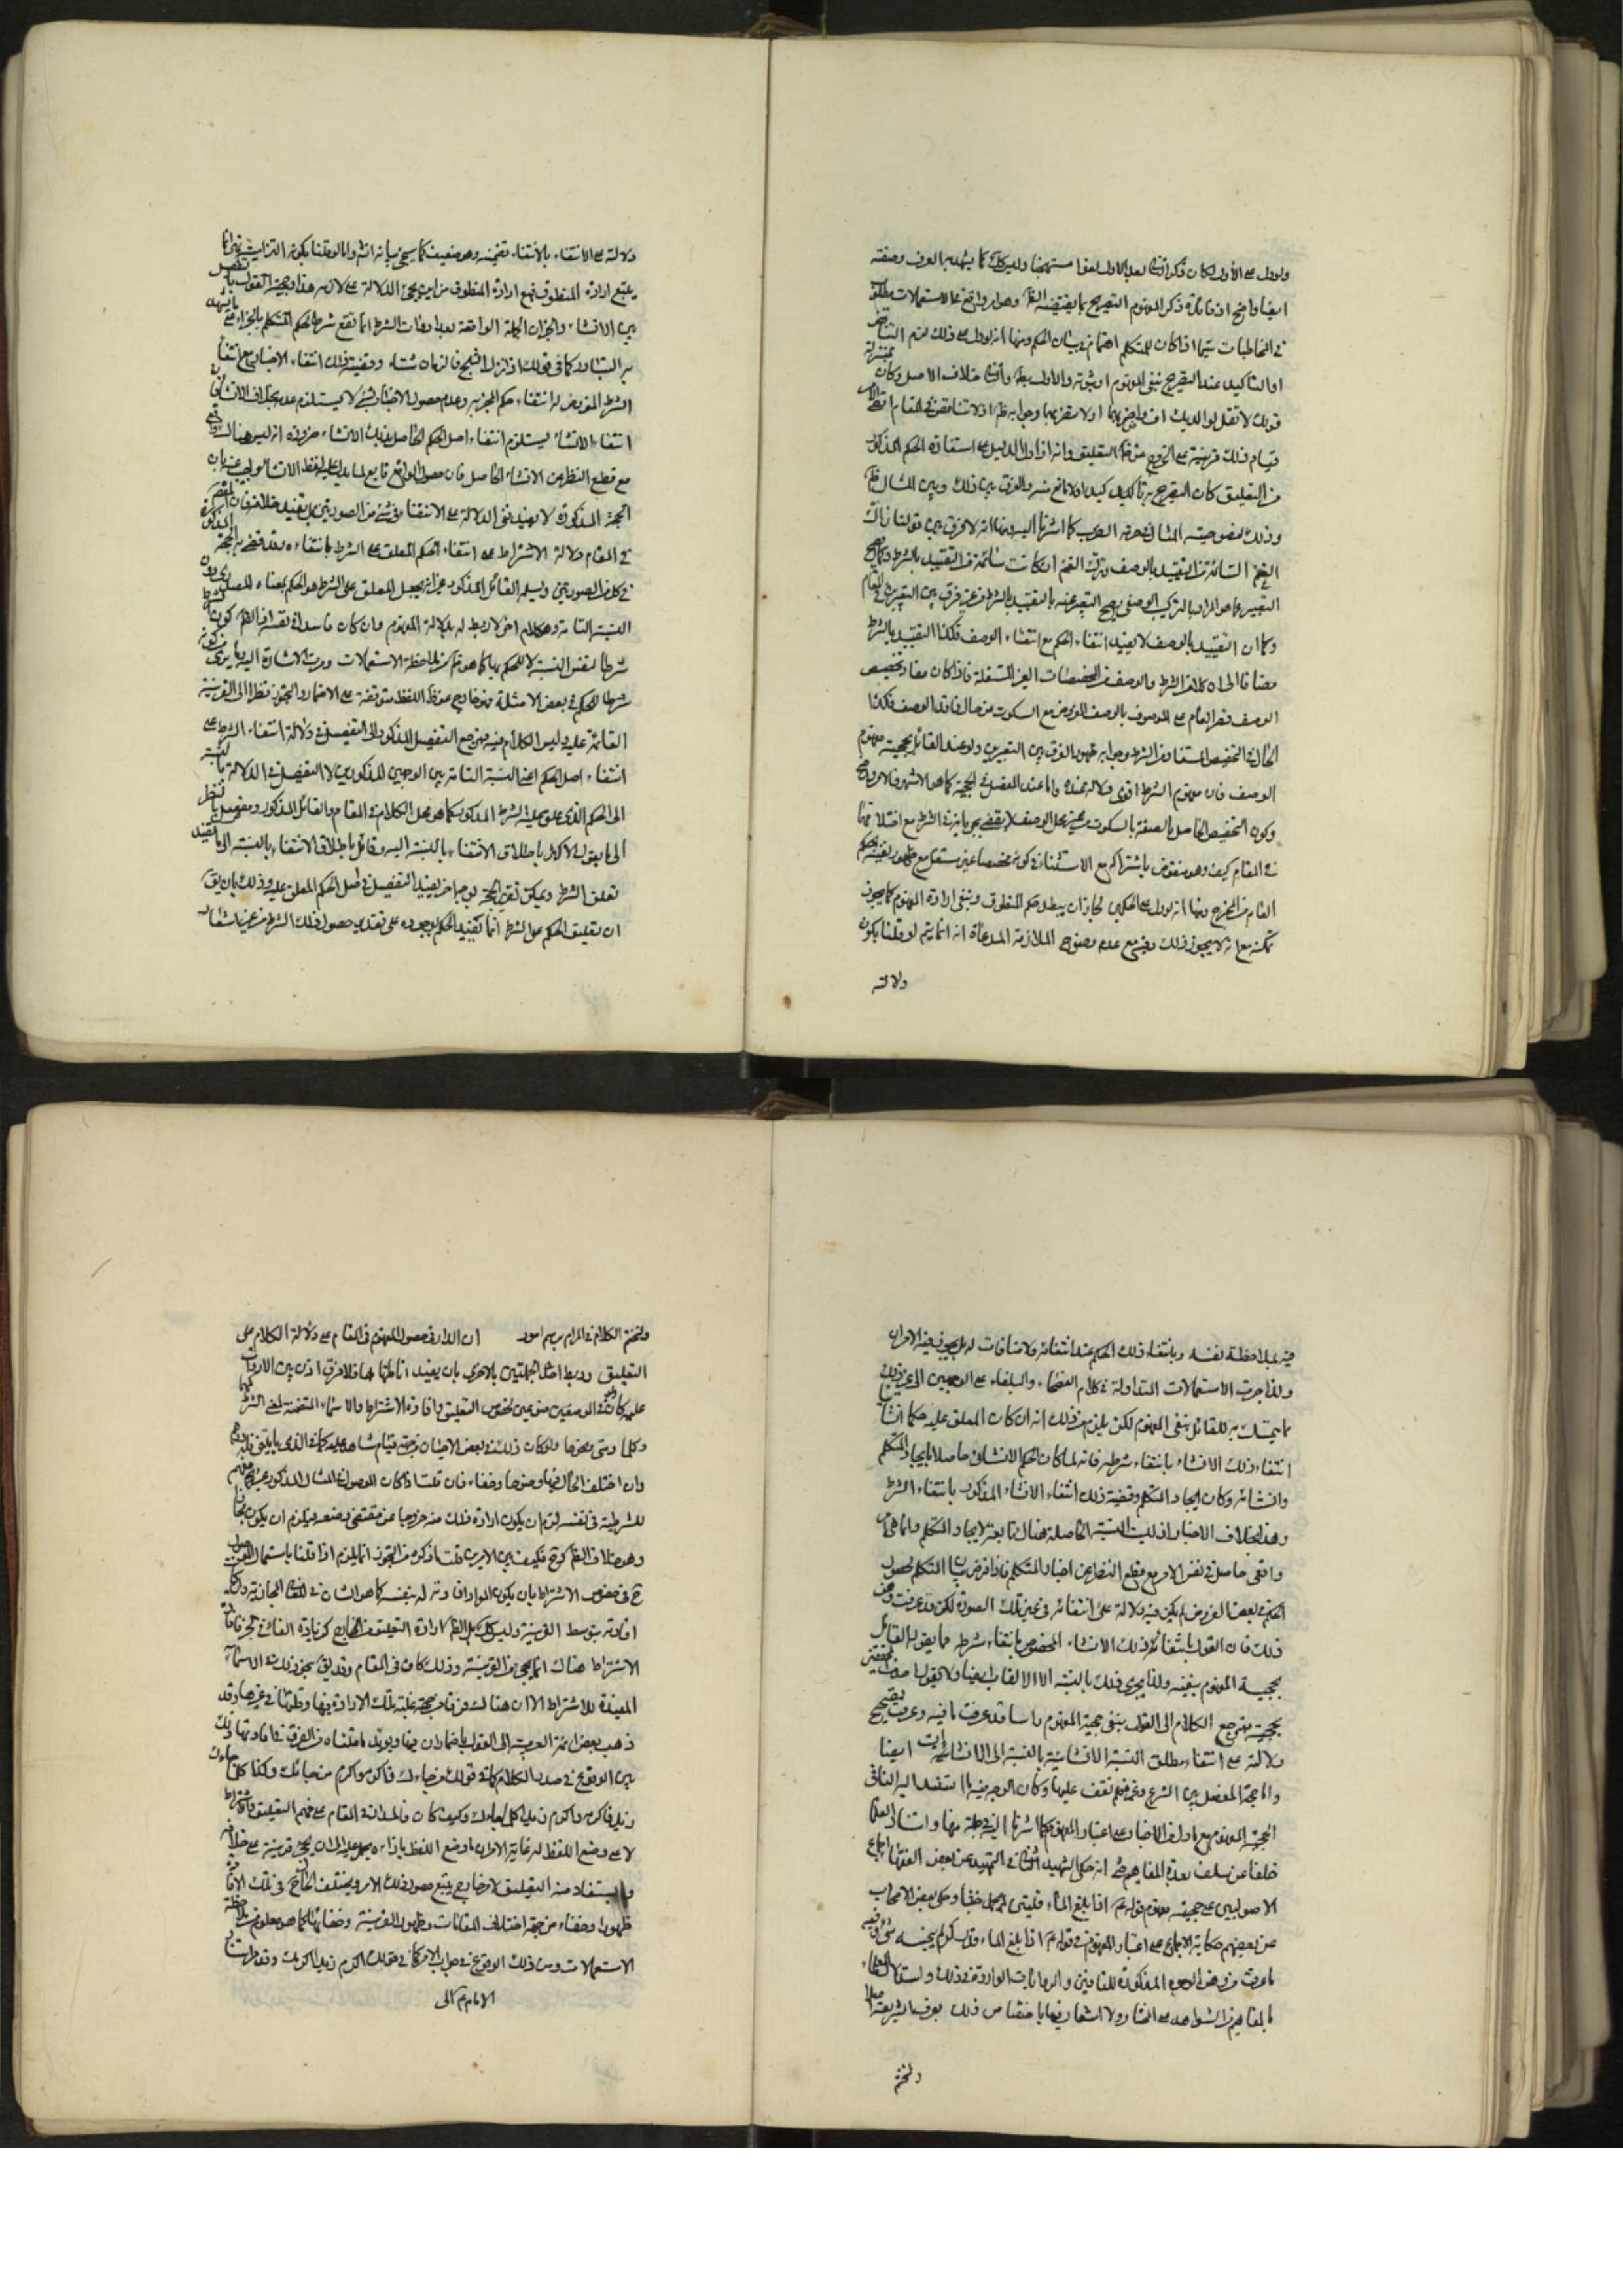 ولو دل على الأول لكان ذكر الثاني بعد الاول لغوا مستهجنا وليس كك كما يشهد به العرف وضعفه
ايضا واضح اذ فائدة ذكر المفهوم التصريح بما يقتضيه الظ وهو امر واقع في الاستعمالات مطلوب
في المخاطبات سيما اذا كان للمتكلم اهتمام في بيان الحكم ومنها انه لو دل على ذلك لزم التناقض
او التاكيد عند التصريح بنفي المفهوم او ثبوته والاول بط والثاني خلاف الاصل وكان بمنزلة
قولك لا تقل لوالديك اف واضربهما او لا تضربهما وجوابه ظ اذ لا تناقض في المقام اقصى الامر
قيام ذلك قرينة على الخروج عن ظ التعليق وانه اذا دل الدليل على استفادة الحكم المذكور
من التعليق كان التصريح به تاكيدا ولا مانع منه والفرق بين ذلك وبين المثال ظ
وذلك لخصوصية المثال في عرف العرب كما اشرنا اليه ومنها انه لا فرق بين قولنا زك
الغنم السائمة في التقييد بالوصف وزك الغنم ان كانت سائمة في التقييد بالشرط وكما يصح
التعبير عما هو المراد بالتركيب الوصفي يصح التعبير عنه بالتقييد بالشرط من غير فرق بين التعبيرين في المقام
وكما ان التقييد بالوصف لا يفيد انتفاء الحكم مع انتفاء الوصف فكذا التقييد بالشرط
مضافا الى ان كلا من الشرط والوصف من المخصصات الغير المستقلة فاذا كان مفاد تخصيص
الوصف قصر العام على الموصوف بالوصف المفروض مع السكوت عن حال فاقد الوصف فكذا
الحال في التخصيص المستفاد من الشرط وجوابه ظهور الفرق بين التعبيرين ولو عند القائل بحجية مفهوم
الوصف فان مفهوم الشرط اقوى دلالة عنده واما عند المفصل في الحجية كما هو الاشهر فالامر واضح
وكون التخصيص الحاصل بالصفة بالسكوت عن غير محل الوصف لا يقضي بجريانه في الشرط مع اختلافهما
في المقام كيف وهو منقوض باشتراكه مع الاستثناء في كونه مخصصا غير مستقل مع ظهور نفيه الحكم
العام من المخرج ومنها انه لو دل على الحكمين لجاز ان يبطل حكم المنطوق ويبقى ارادة المفهوم كما يجوز
عكسه مع انه لا يجوز ذلك وفيه مع عدم وضوح الملازمة المدعاة انه انما يتم لو قلنا بكون
دلالته
دلالته على الانتفاء بالانتفاء تضمنية وهو ضعيف كما سيجئ بيانه انشاء واما لو قلنا بكونه التزامية فهي انما
يتبع ارادة المنطوق فمع ارادة المنطوق من اين يجئ الدلالة على لازمه هذا وحجة القول بالتفصيل
بين الانشاء والخبر ان الجملة الواقعة بعد ادوات الشرط انما تقع شرطا لحكم المتكلم بالجزاء على ما يشهد
به التبادر كما في قولك اذا نزل الثلج فالزمان شتاء وقضية ذلك انتفاء الاخبار مع انتفاء
الشرط المفروض لا انتفاء حكم المخبر به وعدم حصول الاخبار بشئ لا يستلزم عدمه بخلاف الانشاء فان
انتفاء الانشاء يستلزم انتفاء اصل الحكم الحاصل بذلك الانشاء ضرورة انه ليس هناك واقع
مع قطع النظر عن الانشاء الحاصل فان حصول الواقع تابع لما يدل عليه لفظ الانشاء ويجب عنه بان
الحجة المذكورة لا تفيد نفي الدلالة على الانتفاء في شئ من الصورتين بل تفيد خلافه فان المفهوم
في المقام دلالة الاشتراط على انتفاء الحكم المعلق على الشرط بانتفاءه وقد قضى به الحجة المذكورة
في كلا الصورتين ويسلمه القائل المذكور غير انه يجعل المعلق على الشرط هو الحكم بمعناه المصدري دون
النسبة التامة وهو كلام اخر لا ربط له بدلالة المفهوم وان كان فاسدا في نفسه اذ الظ كون الشرط
شرطا لنفس النسبة لا للحكم بها كما هو ظ من ملاحظة الاستعمالات ومرت الاشارة اليه وما يرى من كونه
شرطا للحكم في بعض الامثلة فهو خارج عن ظ اللفظ متوقفة على الاضمار والتجوز نظرا الى القرينة
القائمة عليه وليس الكلام فيه فمرجع التفصيل المذكور الى التفصيل في دلالة انتفاء الشرط على
انتفاء اصل الحكم اعني النسبة التامة بين الوجهين المذكورين لا التفصيل في الدلالة بالنسبة
الى الحكم الذي علق عليه الشرط المذكور كما هو محل الكلام في المقام والقائل المذكور مفصل بالنظر
تعلق الشرط ويمكن تقرير الحجة بوجه اخر يفيد التفصيل في اصل الحكم المعلق عليه وذلك بان يق
ان تعليق الحكم على الشرط انما تفيد الحكم بوجوده على تقدير حصول ذلك الشرط من غير اشعار
فيه بملاحظة نفسه وبانتفاء ذلك الحكم عند انتفائه ولا منافات له بل يجوز فيه الامران
ولذا جرت الاستعمالات المتداولة في كلام الفصحاء والبلغاء على الوجهين الى غير ذلك
مما يتمسك به للقائل بنفي المفهوم لكن يلزم من ذلك انه ان كان المعلق عليه حكما انشائيا
انتفاء ذلك الانشاء بانتفاء شرطه فانه لما كان الحكم الانشائي حاصلا بايجاد المتكلم
وانشائه وكان ايجاد المتكلم وقضية ذلك انتفاء الانشاء المذكور بانتفاء الشرط
وهذا بخلاف الاخبار اذ ليست النسبة الحاصلة هناك تابعة لايجاد المتكلم وانما هي امر
واقعي حاصل في نفس الامر مع قطع النظر عن اخبار المتكلم فاذا فرض بيان المتكلم لحصول
الحكم في بعض الفروض لم يكن فيه دلالة على انتفائه في غير تلك الصورة لكن قد عرفت وهن
ذلك فان القول بانتفاء ذلك الانشاء المخصوص بانتفاء شرطه مما يقول القائل
بحجية المفهوم بنفيه ولذا يجري ذلك بالنسبة الى الالقاب ايضا ولا يقول المحققين
بحجيته فمرجع الكلام الى القول بنفي حجية المفهوم راسا وقد عرفت ما فيه وعرفت تصحيح
دلالته على انتفاء مطلق النسبة الانشائية بالنسبة الى الانشائيات ايضا
واما حجة المفصل بين الشرع وغيره فلم نقف عليها وكان الوجه فيه ما استند اليه النافي
لحجية المفهوم مع ما دل من الاخبار على اعتبار المفهوم كما اشرنا اليه في جملة منها واستناد العلماء
خلفا عن سلف بعدة المفاهيم ففي انه حكى الشهيد الثاني في التمهيد عن بعض الفقهاء اجماع
الاصوليين على حجية مفهوم قوله ع اذا بلغ الماء قلتين لم يحمل خبثا وحكى بعض الاصحاب
عن بعضهم حكاية الاجماع على اعتبار المفهوم في قوله ع اذا بلغ الماء قدر كر لم ينجسه شئ وفيه
ما عرفت من وهن الوجوه المذكورة للنافين والروايات الواردة في ذلك واستدلال العلماء
بالمفاهيم من الشواهد على المختار ولا اشعار فيها باختصاص ذلك بعرف الشريعة اصلا
ولنختم
ولنختم الكلام في المرام برسم امور ان المدار في حصول المفهوم في المقام على دلالة الكلام على
التعليق وربط احدى الجملتين بالاخرى بان يفيد اناطتها بها فلا فرق اذن بين الادوات
وكلما ومتى ونحوها ولو كان ذلك في بعض الاحيان من جهة قيام شاهد عليه كما في الذي ياتيني فله درهم
وان اختلف الحال فيها وضوحا وخفاء فان قلت اذا كان الموصول في المثال المذكور غير مفهم
للشرطية في نفسه لزم ان يكون ارادة ذلك منه خروجا عن مقتضى وضعه فيلزم ان يكون مجازا
وهو خلاف الظ فكيف يبين الامر قلت ما ذكر من التجوز انما يلزم اذا قلنا باستعمال الموصول
ح في خصوص الاشتراط بان يكون المراد افادته له بنفسه كما هو الشان في المعاني المجازية وان كان
افادته بتوسط القرينة وليس كك بل الظ ارادة التعليق من الخارج كزيادة الفاء في الخبر فافادة
الاشتراط هناك انما يجئ من القرينة وذلك كاف في المقام وقد يق بجريان ذلك في الاسماء
المفيدة للاشتراط الا ان هناك فرقا من جهة غلبة تلك الارادة فيها وقلتها في غيرها وقد
ذهب بعض ائمة العربية الى القول باضمار ان فيها ويؤيد ما قلناه من الفرق في افادتها ذلك
بين الوقوع في صدر الكلام كما في قولك من جاءك فاكرمه واكرم من جاءك وكذا كلما جاءك
زيد فاكرمه واكرم زيدا كلما جاءك وكيف كان فالمدار في المقام على فهم التعليق والاشتراط
لا على وضع اللفظ له غاية الامر ان ما وضع اللفظ بازاءه يحمل عليه الى ان يجئ قرينة على خلافه
وما يستفاد منه التعليق لا من خارج يتبع حصول ذلك الامر ويختلف الحال ح في تلك الافادة
ظهورا وخفاء من جهة اختلاف المقامات وظهور القرينة وخفائها كما هو معلوم من ملاحظة
الاستعمالات ومن ذلك الوقوع في جواب الامر كما في قولك اكرم زيدا اكرمك وقد